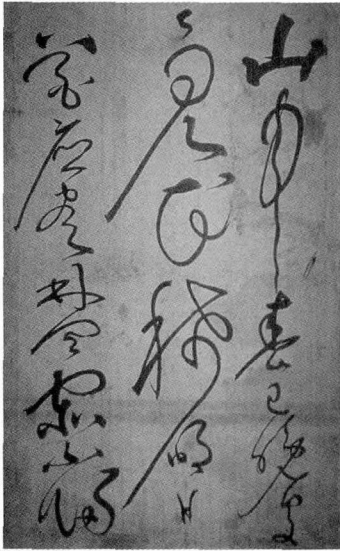 山中春已晚處
々見花稀明日
來應盡林間宿不歸